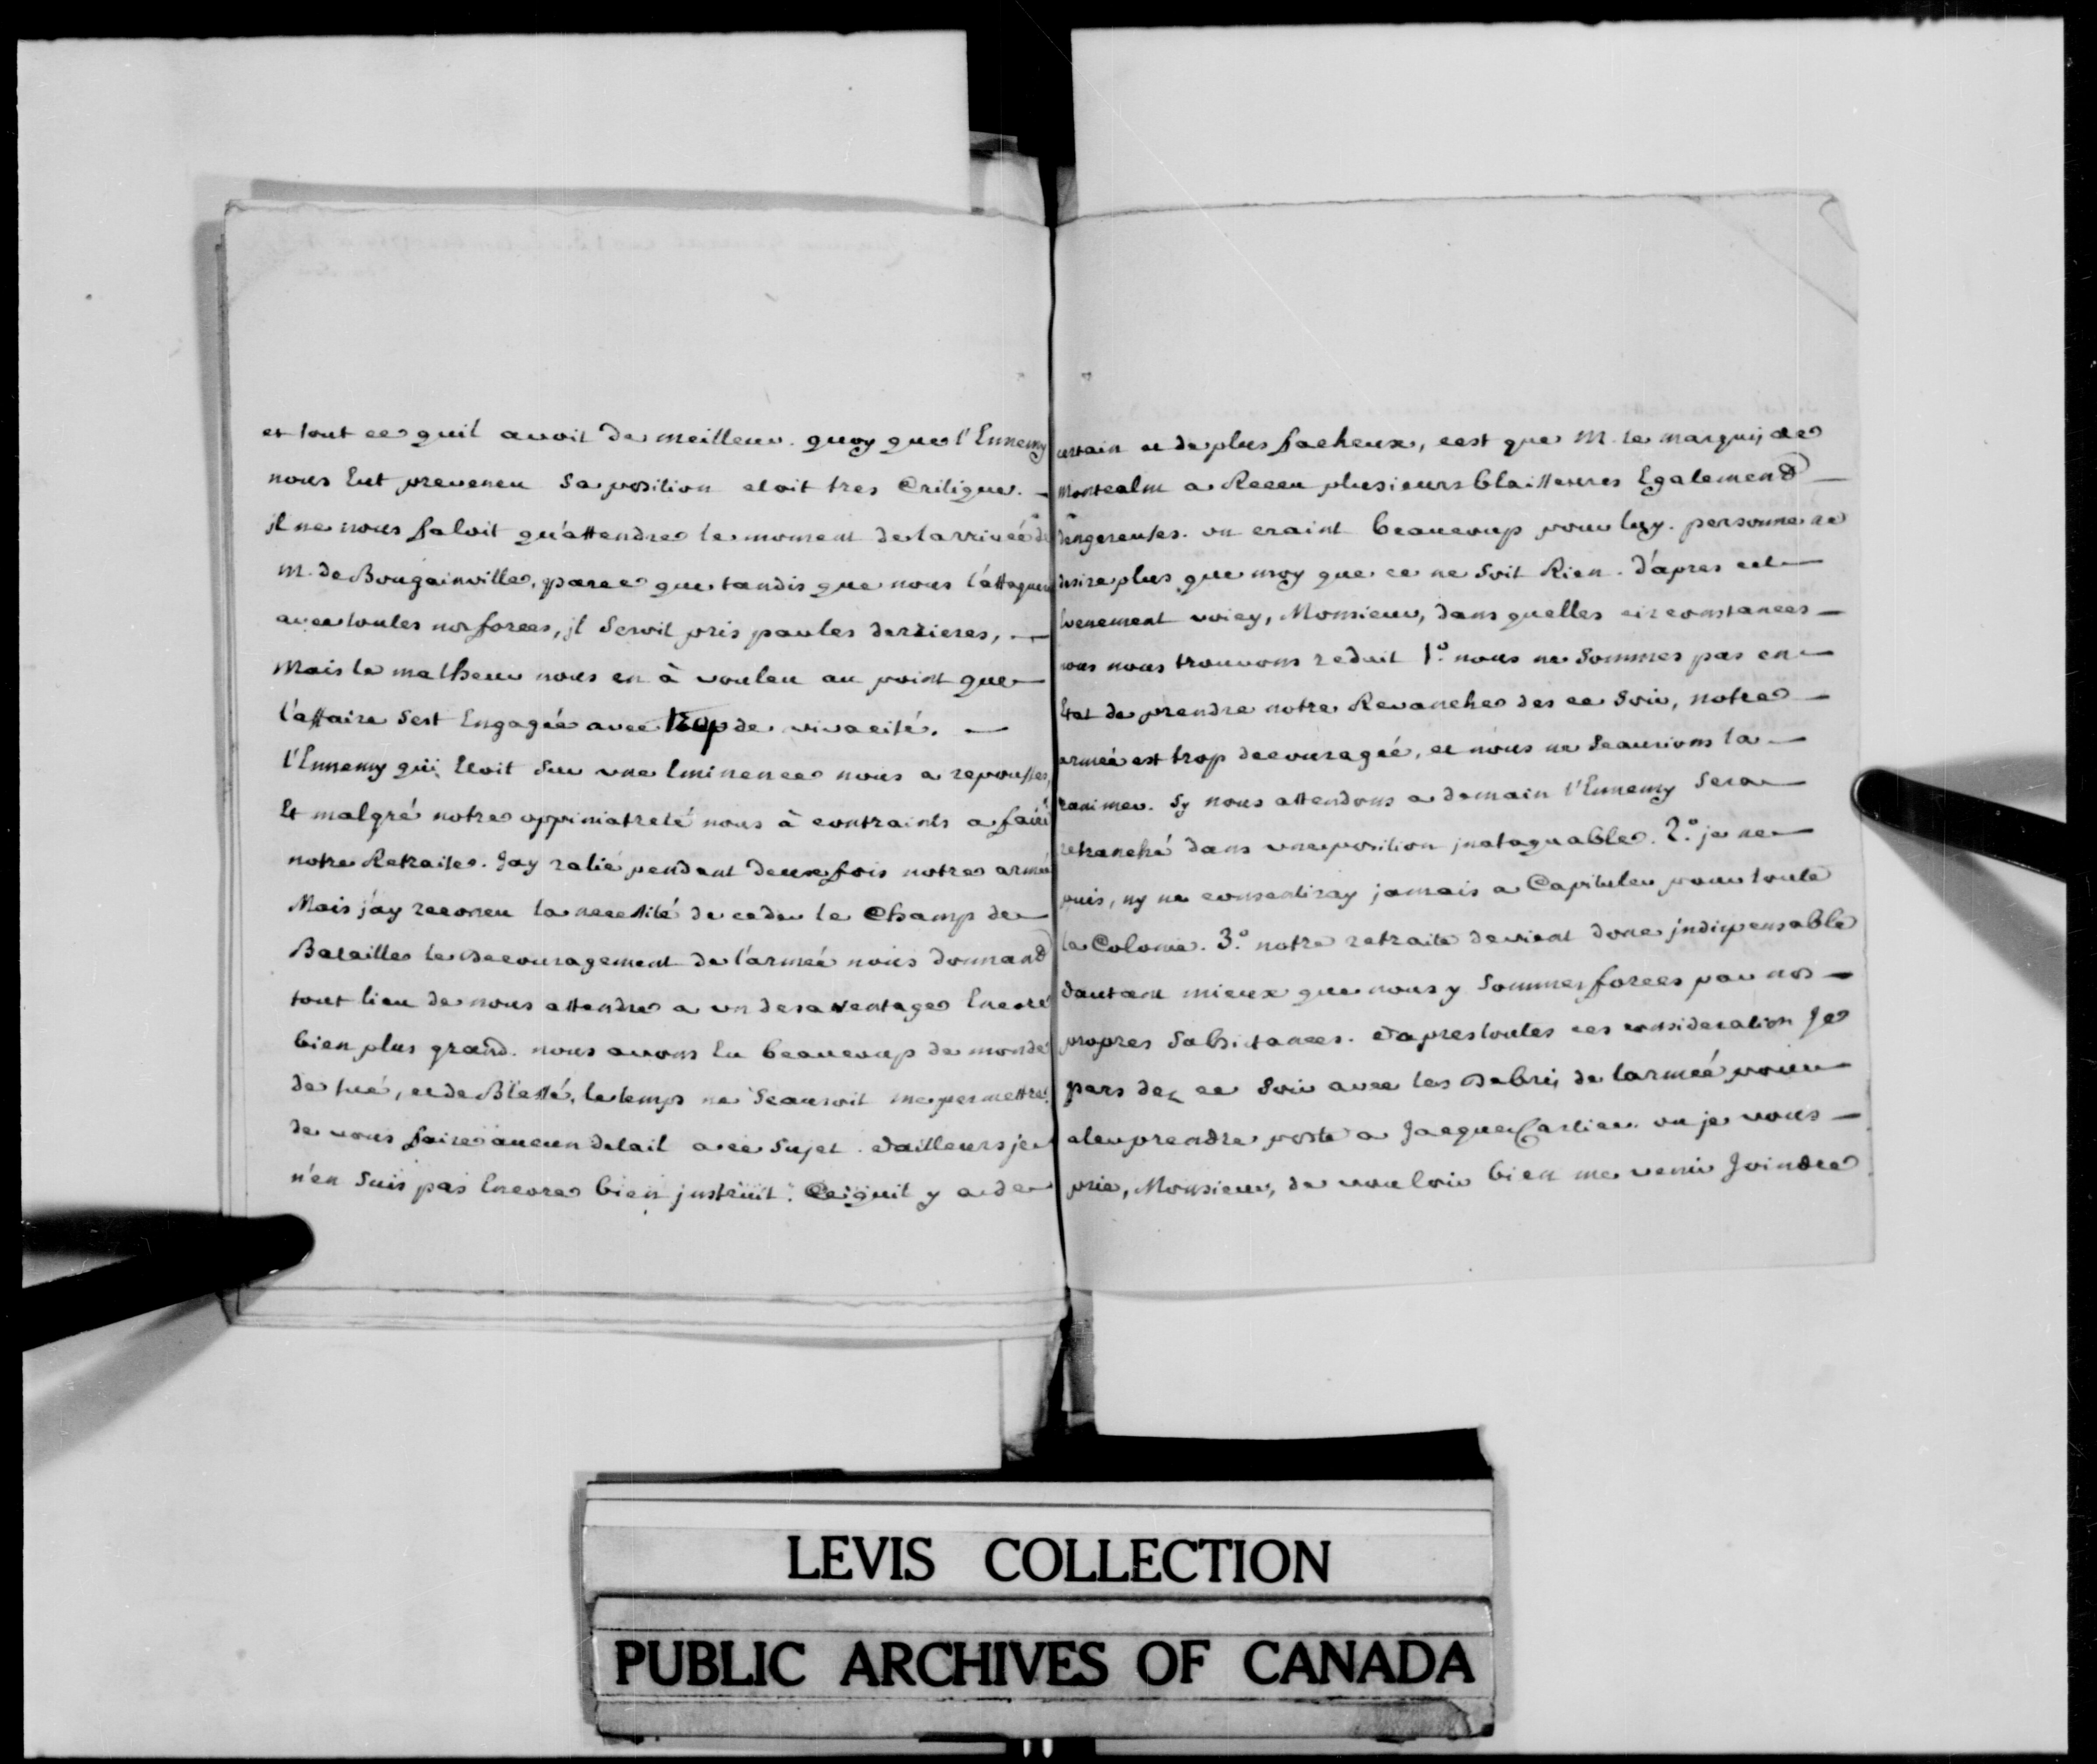 et tout ce quil avoit de meilleur. quoy que l'Ennemy
nous Eut prevenu sa position etoit tres Critique. —
jl ne nous faloit qu'attendre le moment de larrivée de
M. de Bougainville, parce que tandis que nous l'attaquerions
avec toutes nos forces, jl seroit pris par les derrieres, —
Mais le malheur nous en à voulu au point que —
l'affaire sest Engagée avec trop de vivacité. —
l'Ennemy qui Etoit sur une Eminence nous a repoussés,
Et malgré notre oppiniatreté nous à contraints a faire
notre Retraite. Jay ralié pendant deux fois notre armée
Mais j'ay reconnu la necessité de ceder le Champ de
Bataille le decouragement de l'armeé nous donnand
tout lieu de nous attendre a un desaventage Encore
bien plus grand. nous avons Eu beaucoup de monde
de tué, et de Blessé, le temps ne sçauroit me permettre
de vous faire aucun detail a ce sujet. dailleurs je
n'en suis pas Encore bien justruit. Ce quil y a de
certain et de plus facheux, cest que M. le marquis de
Montcalm a Receu plusieurs blaisseures Egalemend —
dengereuses. on craint beaucoup pour luy. personne ne
desire plus que moy que ce ne soit Rien. d'apres cet
Evenement voicy, Monsieur, dans quelles circonstances —
nous nous trouvons reduit 1.º nous ne sommes pas en —
Etat de prendre notre Revanche des ce soir, notre —
armée est trop decouragée, et nous ne sçaurions la —
ranimer. sy nous attendons a demain l'Ennemy sera
retranché dans une position jnataquable. 2.º je ne —
puis, ny ne consentiray jamais a Capituler pour toute
la Colonie. 3.º notre retraite devient donc jndispensable
dautant mieux que nous y sommes forcés par nos —
propres subsistances. d'apres toutes ces consideration Je
pars des ce soir avec les debris de larmeé pour
aler prendre poste a Jacques Cartier ou je vous —
prie, Monsieur, de vouloir bien me venir Joindre
LEVIS COLLECTION
PUBLIC ARCHIVES OF CANADA